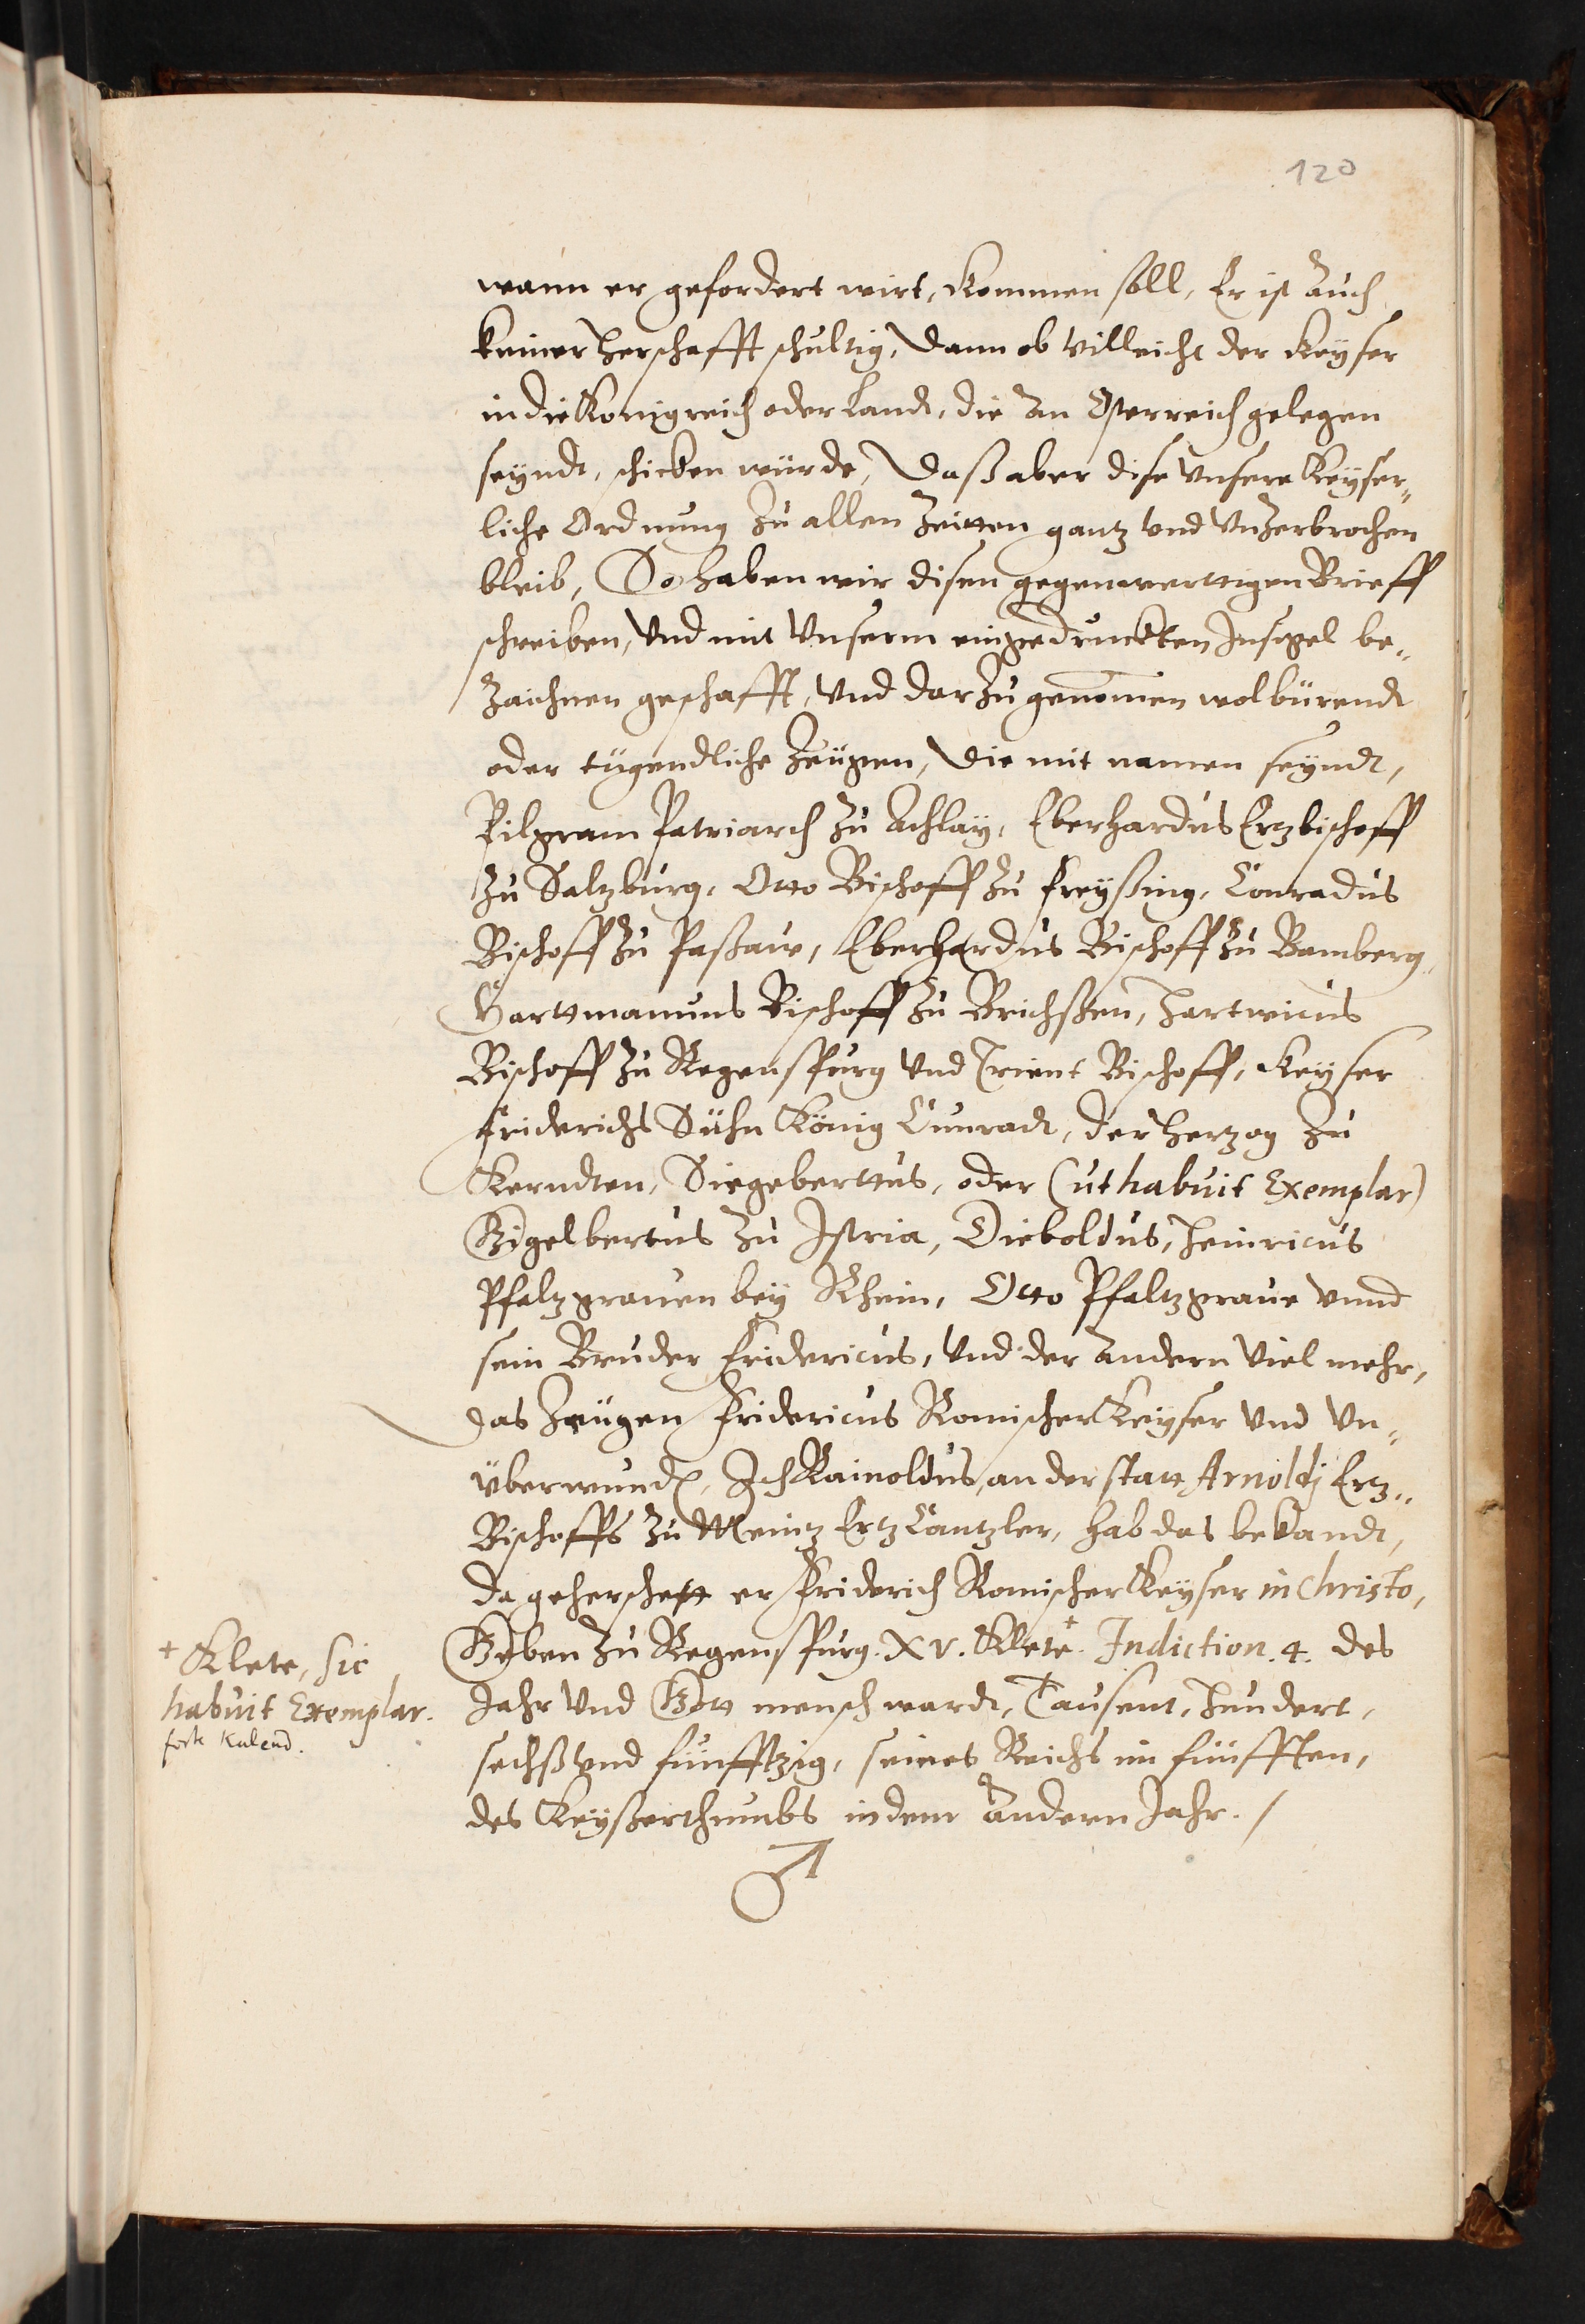 120
wann er gefordert wirt, kommen soll, Er ist auch
keiner herschafft schultig, Dann ob villeicht der Keyser
in die Konigreich oder Landt, die an Osterreich gelegen
seyndt, schicken würde, Daß aber dise unsere Keyser„
liche Ordnung zu allen Zeitten gantz und unzerbrochen
bleib, So haben wir disen gegenwerttigen Brieff
schreiben, und mit Unserm eingedruckten Insigel be„
zaichnen geschafft, und darzu genomen wolbürendt
oder tügendliche Zeügen, Die mit namen seyndt,
Pilgram Patriarch zu Achlay, Eberhardus Ertzbischoff
zu Saltzburg, Otto Bischoff zu Freyßing, Conradus
Bischoff zu Paßaw, Eberhardus Bischoff zu Bamberg,
Harttmannus Bischoff zu Brichßen, Hartwicus
Bischoff zu Regenspurg und Trient Bischoff, Keyser
Friderichs Sühn König Cunradt, der Hertzog zu
Kerndten, Siegeberttus, oder (ut habuit Exemplar)
Gigelbertus zu Istria, Dieboldus, Heinricus
Pfaltzgrauen bey Rhein, Otto Pfaltzgraue unnd
sein Bruder Fridericus, und der andern viel mehr,
das Zeügen Fridericus Romischer Keyser und Un„
überwundt, Ich Rainoldus, an der statt Arnoldj Ertz„
Bischoffs zu Meintz Ertz Cantzler, hab das bekandt,
da geherschett er Friderich Romischer Keyser in Christo,
Geben zu Regenspurg. XV. Klete+. Indiction. 4. des
Jahr und Gott mensch wardt, Tausent, hundert,
sechß und fünfftzig, seines Reichs im fünfften,
des Keyßerthumbs in dem andern Jahr. /
+ Klete, sic
habuit Exemplar.
forte Kalend.